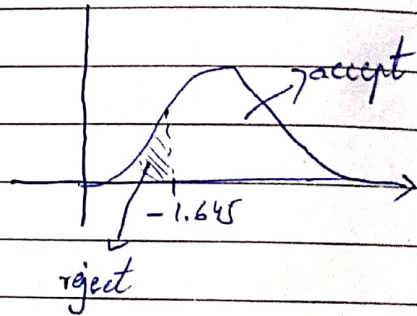 accept
-1.645
reject